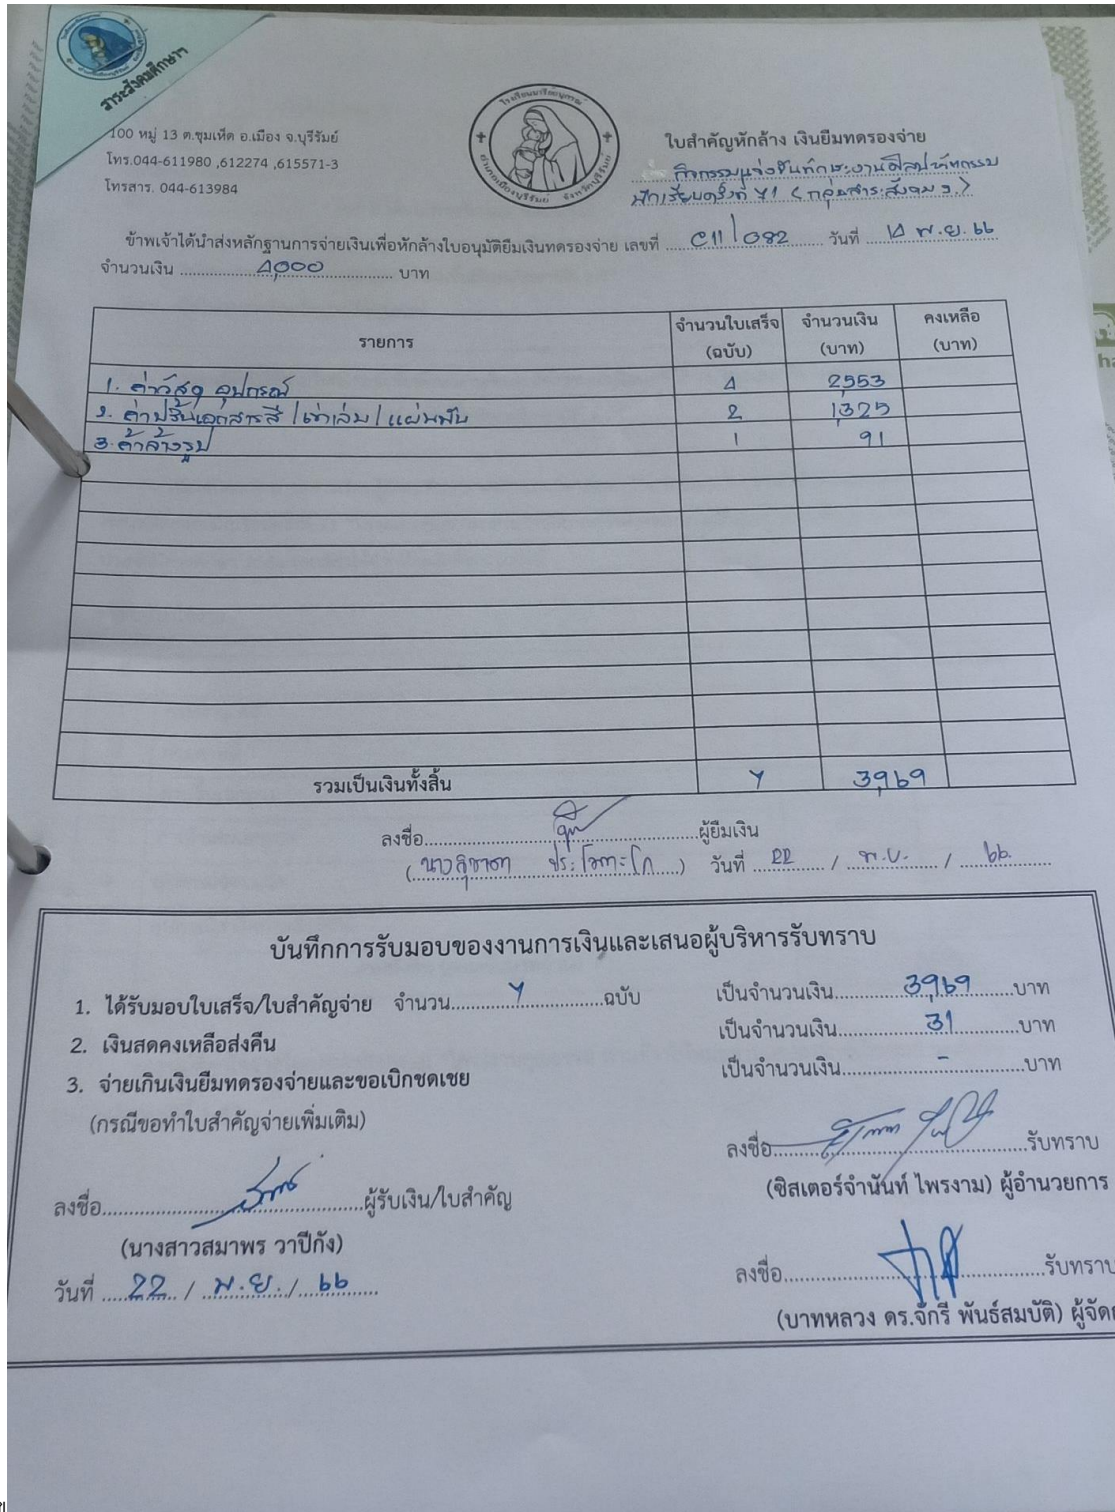 สาระสังคมศึกษาฯ
100 หมู่ 13 ต.ชุมเห็ด อ.เมือง จ.บุรีรัมย์
โทร.044-611980 ,612274 ,615571-3
โทรสาร. 044-613984
ใบสำคัญหักล้าง เงินยืมทดรองจ่าย
กิจกรรมแข่งขันทักษะงานศิลปหัตถกรรม
นักเรียนครั้งที่ 71 (กลุ่มสาระสังคม ฯ)
ข้าพเจ้าได้นำส่งหลักฐานการจ่ายเงินเพื่อหักล้างใบอนุมัติยืมเงินทดรองจ่าย เลขที่ C11/082 วันที่ 14 พ.ย. 66
จำนวนเงิน 4,000 บาท
รายการ จำนวนใบเสร็จ (ฉบับ) จำนวนเงิน (บาท) คงเหลือ (บาท)
1. ค่าวัสดุ อุปกรณ์ 4 2,553
2. ค่าปริ้นเอกสารสี / เข้าเล่ม / แผ่นพับ 2 1,325
3. ค่าล้างรูป 1 91
รวมเป็นเงินทั้งสิ้น 7 3,969
ลงชื่อ ผู้ยืมเงิน
(นางสุชาดา) วันที่ 22 / พ.ย. / 66
บันทึกการรับมอบของงานการเงินและเสนอผู้บริหารรับทราบ
1. ได้รับมอบใบเสร็จ/ใบสำคัญจ่าย จำนวน 7 ฉบับ เป็นจำนวนเงิน 3,969 บาท
2. เงินสดคงเหลือส่งคืน เป็นจำนวนเงิน 31 บาท
3. จ่ายเกินเงินยืมทดรองจ่ายและขอเบิกชดเชย เป็นจำนวนเงิน - บาท
(กรณีขอทำใบสำคัญจ่ายเพิ่มเติม)
ลงชื่อ รับทราบ
(ซิสเตอร์จำนันท์ ไพรงาม) ผู้อำนวยการ
ลงชื่อ ผู้รับเงิน/ใบสำคัญ
(นางสาวสมาพร วาปีกัง)
วันที่ 22 / พ.ย. / 66
ลงชื่อ รับทราบ
(บาทหลวง ดร.จักรี พันธ์สมบัติ) ผู้จัด